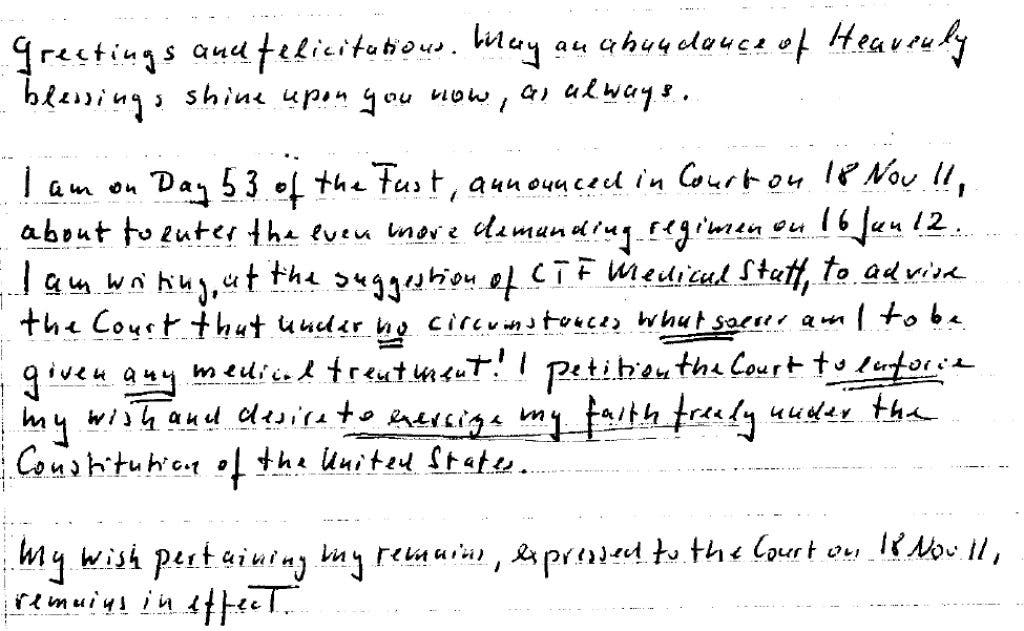 Greetings and felicitations. May an abundance of Heavenly
blessings shine upon you now, as always.
I am on Day 53 of the Fast, announced in Court on 18 Nov 11,
about to enter the even more demanding regimen on 16 Jan 12.
I am writing, at the suggestion of CTF Medical Staff, to advise
the Court that under no circumstances whatsoever am I to be
given any medical treatment! I petition the Court to enforce
my wish and desire to exersize my faith freely under the
Constitution of the United States.
My wish pertaining my remains, expressed to the Court on 18 Nov 11,
remains in effect.